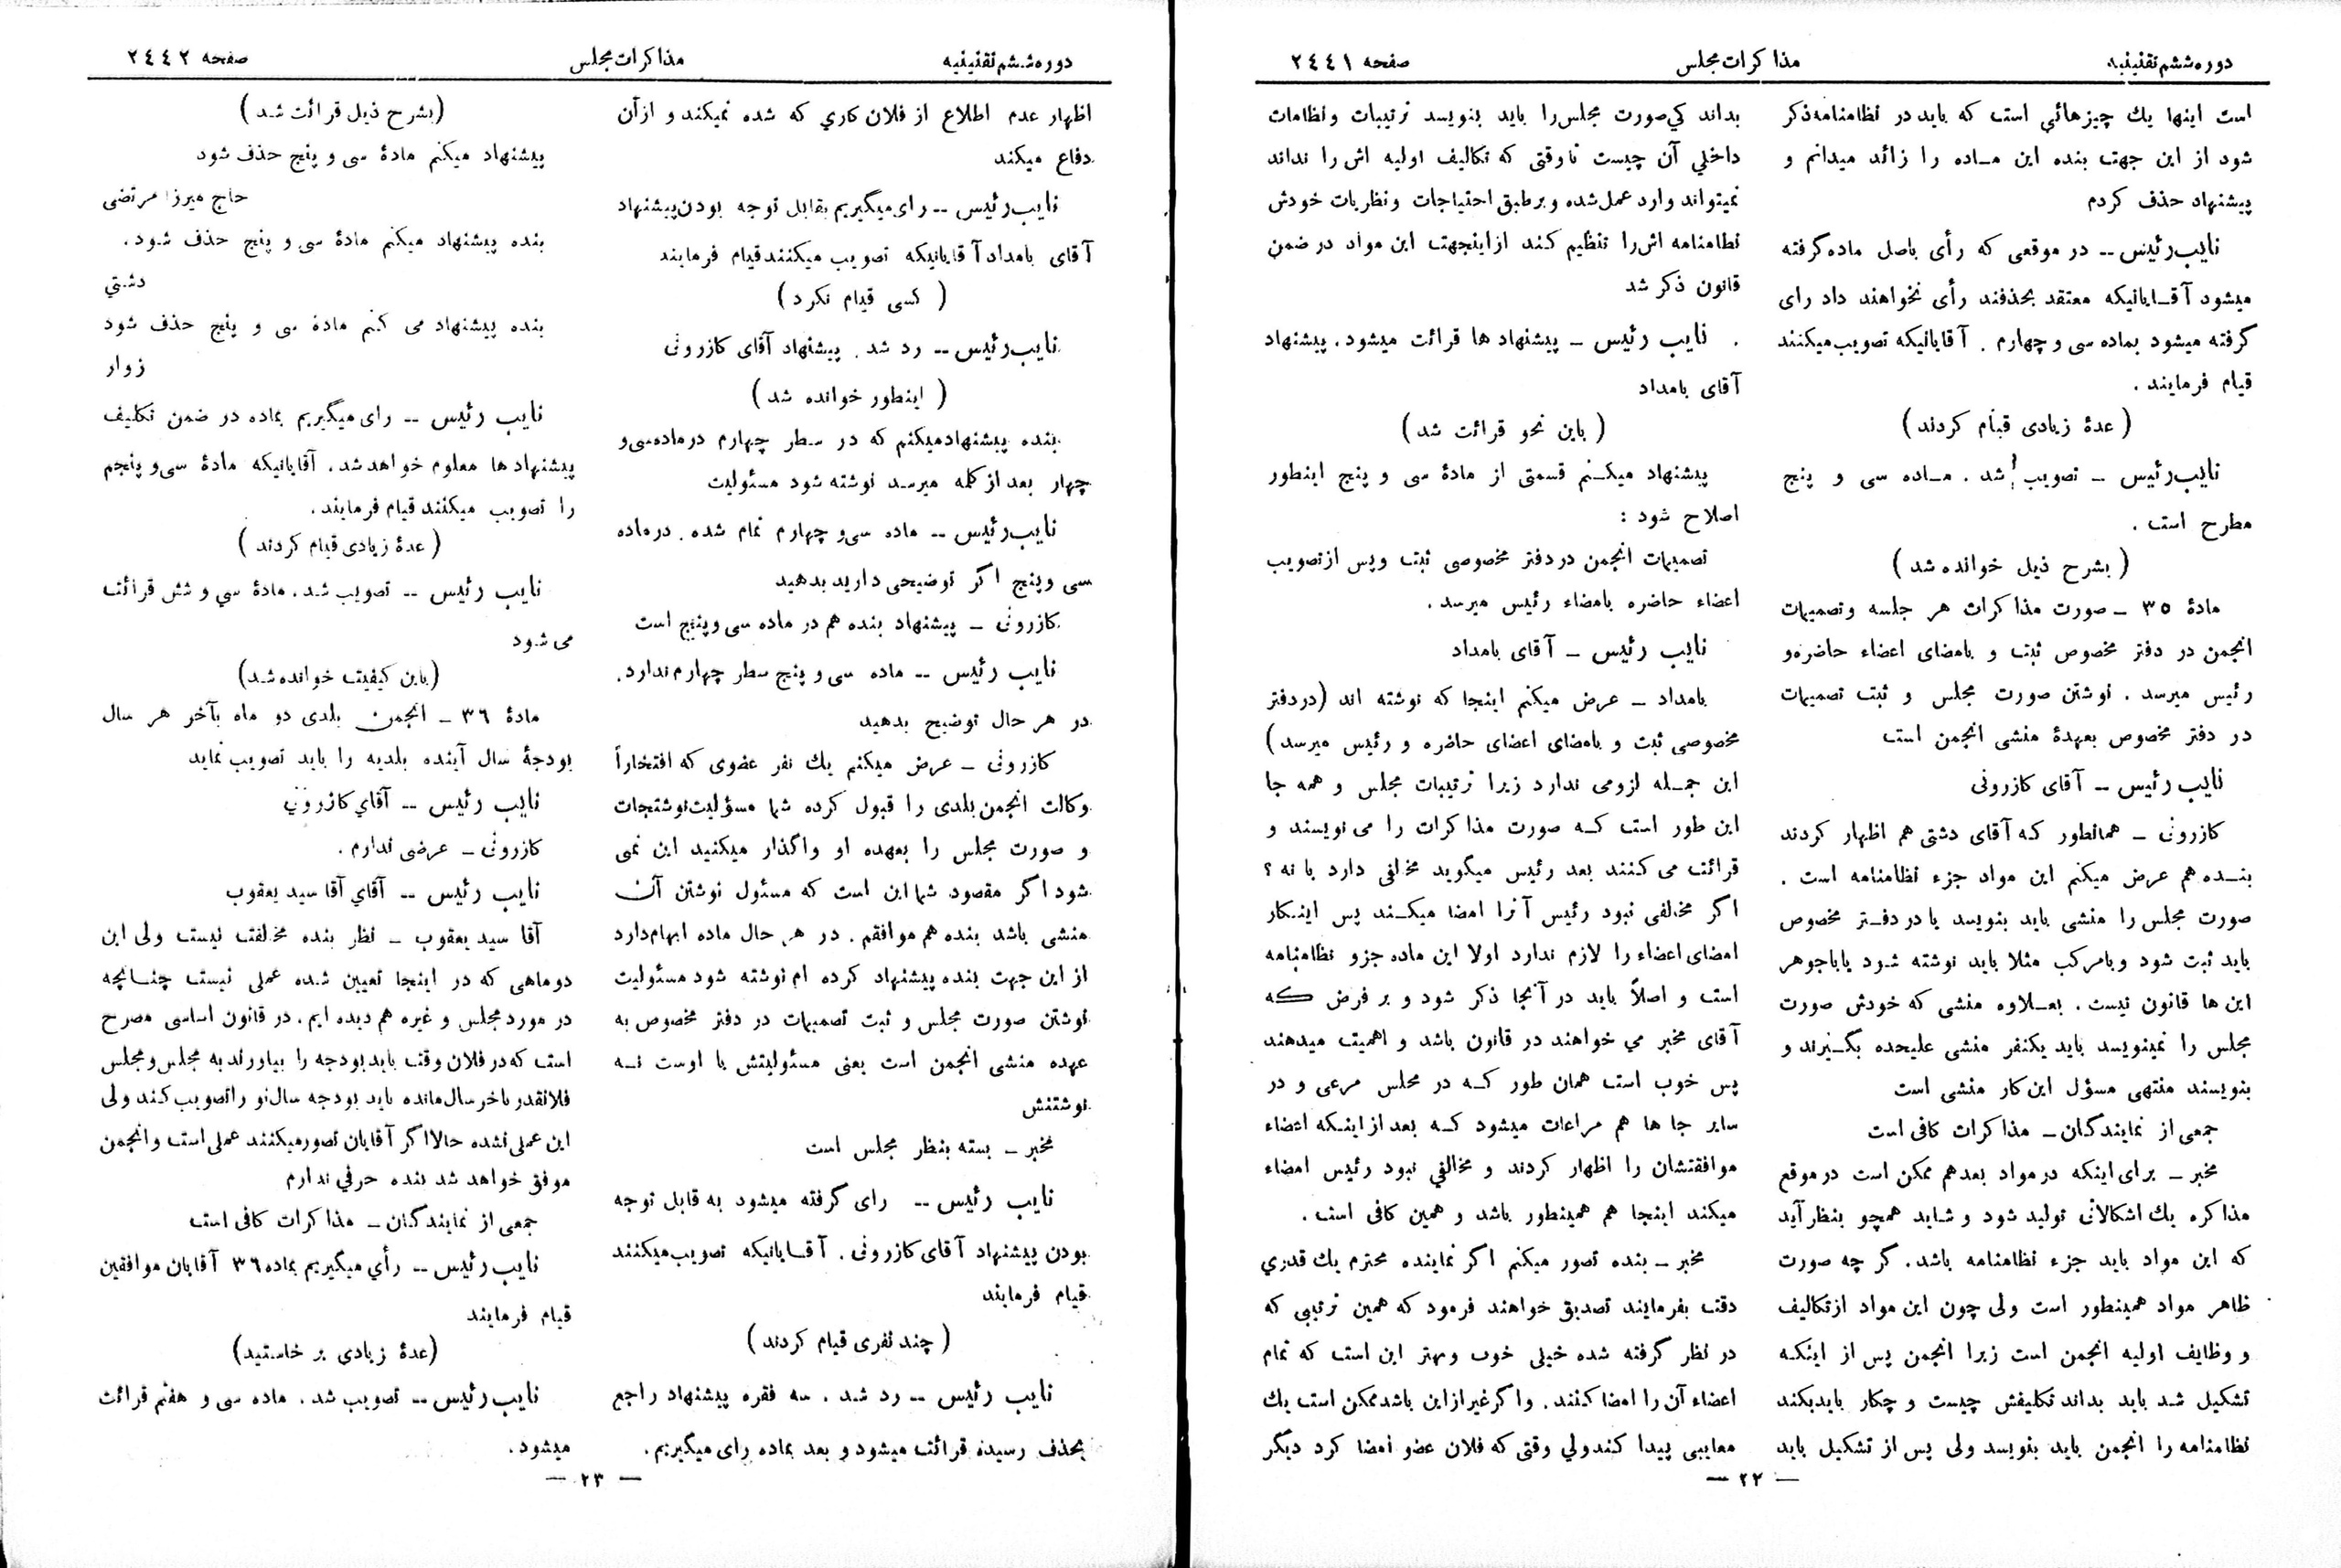 دوره ششم تقنینیه مذاکرات مجلس صفحه ۲٤٤۱
است اینها یك چیزهائي است که باید در نظامنامه ذکر
شود از این جهت بنده این مـاده را زائد میدانم و
پیشنهاد حذف کردم
نایب رئیس -- در موقعی که رأی باصل ماده گرفته
میشود آقـایانیکه معتقد بحذفند رأی نخواهند داد رای
گرفته میشود بماده سی و چهارم . آقایانیکه تصویب میکنند
قیام فرمایند .
( عدهٔ زیادی قیام کردند )
نایب رئیس ـ تصویب شد . مـاده سی و پنج
مطرح است .
( بشرح ذیل خوانده شد )
مادهٔ ۳٥ ـ صورت مذاکرات هر جلسه و تصمیمات
انجمن در دفتر مخصوص ثبت و بامضای اعضاء حاضره و
رئیس میرسد . نوشتن صورت مجلس و ثبت تصمیمات
در دفتر مخصوص بعهدهٔ منشی انجمن است
نایب رئیس -- آقای کازرونی
کازرونی ـ همانطور که آقای دشتی هم اظهار کردند
بنـده هم عرض میکنم این مواد جزء نظامنامه است .
صورت مجلس را منشی باید بنویسد یا در دفـتر مخصوص
باید ثبت شود و بامرکب مثلا باید نوشته شود یا باجوهر
این ها قانون نیست . بعـلاوه منشی که خودش صورت
مجلس را نمینویسد باید یکنفر منشی علیحده بگـیرند و
بنویسند منتهی مسؤل این کار منشی است
جمعی از نمایندگان ـ مذاکرات کافی است
مخبر ـ برای اینکه در مواد بعدهم ممکن است در موقع
مذاکره یك اشکالاتی تولید شود و شاید همچو بنظر آید
که این مواد باید جزء نظامنامه باشد . گر چه صورت
ظاهر مواد همینطور است ولی چون این مواد از تکالیف
و وظایف اولیه انجمن است زیرا انجمن پس از اینکـه
تشکیل شد باید بداند تکلیفش چیست و چکار باید بکند
نظامنامه را انجمن باید بنویسد ولی پس از تشکیل باید
بداند کي صورت مجلس را باید بنویسد ترتیبات و نظامات
داخلي آن چیست تا وقتی که تکالیف اولیه اش را نداند
نمیتواند وارد عمل شده و بر طبق احتیاجات و نظریات خودش
نظامنامه اش را تنظیم کند از اینجهت این مواد در ضمن
قانون ذکر شد
نایب رئیس ـ پیشنهاد ها قرائت میشود . پیشنهاد
آقای بامداد
( باین نحو قرائت شد )
پیشنهاد میکـنم قسمتی از مادهٔ سی و پنج اینطور
اصلاح شود :
تصمیمات انجمن در دفتر مخصوصی ثبت و پس از تصویب
اعضاء حاضره بامضاء رئیس میرسد .
نایب رئیس ـ آقای بامداد
بامداد ـ عرض میکنم اینجا که نوشته اند ( در دفتر
مخصوصی ثبت و بامضای اعضای حاضره و رئیس میرسد )
این جمـله لزومی ندارد زیرا ترتیبات مجلس و همه جا
این طور است کـه صورت مذاکرات را می نویسند و
قرائت می کنند بعد رئیس میگوید مخالفی دارد یا نه ؟
اگر مخالفی نبود رئیس آنرا امضا میکـند پس اینـکار
امضای اعضاء را لازم ندارد اولا این ماده جزو نظامنامه
است و اصلاً باید در آنجا ذکر شود و بر فرض که
آقای مخبر مي خواهند در قانون باشد و اهمیت میدهند
پس خوب است همان طور کـه در مجلس مرعی و در
سایر جا ها هم مراعات میشود کـه بعد از اینـکه اعضاء
موافقتشان را اظهار کردند و مخالفي نبود رئیس امضاء
میکند اینجا هم همینطور باشد و همین کافی است .
مخبر ـ بنده تصور میکنم اگر نماینده محترم یك قدري
دقت بفرمایند تصدیق خواهند فرمود که همین ترتیبی که
در نظر گرفته شده خیلی خوب و بهتر این است که تمام
اعضاء آن را امضا کنند . و اگر غیر از این باشد ممکن است یك
معایبی پیدا کند ولي وقتی که فلان عضو امضا کرد دیگر
— ۲۲ —
دوره ششم تقنینیه مذاکرات مجلس صفحه ۲٤٤۲
اظهار عدم اطلاع از فلان کاري که شده نمیکند و از آن
دفاع میکند
نایب رئیس -- رای میگیریم بقابل توجه بودن پیشنهاد
آقای بامداد آقایانیکه تصویب میکنند قیام فرمایند
( کسی قیام نکرد )
نایب رئیس -- رد شد . پیشنهاد آقای کازرونی
( اینطور خوانده شد )
بنده پیشنهاد میکنم که در سطر چهارم در ماده سی و
چهار بعد از کلمه میرسد نوشته شود مسئولیت
نایب رئیس -- ماده سی و چهارم تمام شده . در ماده
سی و پنج اگر توضیحی دارید بدهید
کازرونی ـ پیشنهاد بنده هم در ماده سی و پنج است
نایب رئیس -- ماده سی و پنج سطر چهارم ندارد .
در هر حال توضیح بدهید
کازرونی ـ عرض میکنم یك نفر عضوی که افتخاراً
وکالت انجمن بلدی را قبول کرده شما مسؤلیت نوشتجات
و صورت مجلس را بعهده او واگذار میکنید این نمی
شود اگر مقصود شما این است که مسئول نوشتن آن
منشی باشد بنده هم موافقم . در هر حال ماده ابهام دارد
از این جهت بنده پیشنهاد کرده ام نوشته شود مسئولیت
نوشتن صورت مجلس و ثبت تصمیمات در دفتر مخصوص به
عهده منشی انجمن است یعنی مسئولیتش با اوست نـه
نوشتنش
مخبر ـ بسته بنظر مجلس است
نایب رئیس -- رای گرفته میشود به قابل توجه
بودن پیشنهاد آقای کازرونی . آقـایانیکه تصویب میکنند
قیام فرمایند
( چند نفری قیام کردند )
نایب رئیس -- رد شد . سه فقره پیشنهاد راجع
بحذف رسیده قرائت میشود و بعد بماده رای میگیریم .
( بشرح ذیل قرائت شد )
پیشنهاد میکنم مادهٔ سی و پنج حذف شود
حاج میرزا مرتضی
بنده پیشنهاد میکنم مادهٔ سی و پنج حذف شود .
دشتي
بنده پیشنهاد می کنم مادهٔ سی و پنج حذف شود
زوار
نایب رئیس -- رای میگیریم بماده در ضمن تکلیف
پیشنهاد ها معلوم خواهد شد . آقایانیکه مادهٔ سی و پنجم
را تصویب میکنند قیام فرمایند .
( عدهٔ زیادی قیام کردند )
نایب رئیس -- تصویب شد . مادهٔ سي و شش قرائت
می شود
(باین کیفیت خوانده شد)
مادهٔ ۳٦ ـ انجمن بلدی دو ماه بآخر هر سال
بودجهٔ سال آینده بلدیه را باید تصویب نماید
نایب رئیس -- آقاي کازرونی
کازرونی ـ عرضی ندارم .
نایب رئیس -- آقاي آقا سید یعقوب
آقا سید یعقوب ـ نظر بنده مخالفت نیست ولی این
دوماهی که در اینجا تعیین شده عملی نیست چنـانچه
در مورد مجلس و غیره هم دیده ایم . در قانون اساسی مصرح
است که در فلان وقت باید بودجه را بیاورند به مجلس و مجلس
فلانقدر بآخر سال مانده باید بودجه سال نو را تصویب کند ولی
این عملی نشده حالا اگر آقایان تصور میکنند عملی است و انجمن
موفق خواهد شد بنده حرفي ندارم
جمعی از نمایندگان ـ مذاکرات کافی است
نایب رئیس -- رأي میگیریم بماده ۳٦ آقایان موافقین
قیام فرمایند
(عدهٔ زیادی بر خاستند)
نایب رئیس -- تصویب شد . ماده سی و هفتم قرائت
میشود .
— ۲۳ —